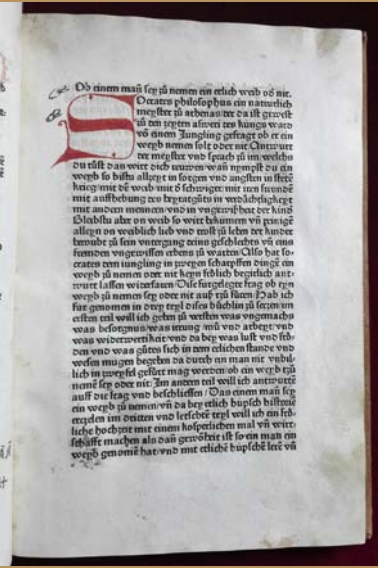 Ob einem mañ sey zů nemen ein elich weib od nit.
Socrates philosophus ein naturlich
meyster zů athenas der da ist gewest
zů den zeyten des küngs ward
võ einem Jungling gefragt ob er ein
weyb nemen solt oder nit Antwurt
der meyster vnd sprach zů im welchs
du tůst dan wirt dich reuwen wañ nympst du ein
weyb so bistu allzeyt in sorgen vnd angsten in stetē
krieg mit dē weib mit d̉ schwiger mit iren freundē
mit auffhebung des heyratgůts in verdächtlichkeyt
mit andern mennen vnd in vngewißheit der kind̉
Bleibstu aber on weib so wirt bekümern vñ peinigē
alleyn on weiblich lieb vnd trost zů leben der kinder
beroubt zů sein vntergang deins geschlechts vñ eins
fremden vngewissen erbens zů warten Also hat so-
crates dem iungling in zweyen scharpffen dingē ein
weyb zů nemen oder nit keyn frölich begirlich ant-
wurt lassen widerfaren Dise furgelegte frag ob eyn
weyb zů nemen sey oder nit auff zů füren Hab ich
fur genomen in drey teyl dises büchlin zů setzen im
ersten teil will ich geben zů versten was vngemachs
was besorgnus was irrung mů vnd arbeyt vnd
was widerwertikeit vnd da bey was lust vnd frö-
den vnd was gůtes sich in dem elichen stande vnd
wesen mugen begeben da durch ein man nit vnbil-
lich in zweyfel gefůrt mag werden ob ein weyb zů
nemē sey oder nit Im andern teil will ich antwurtē
auff die frag vnd beschliessen Das einem man sey
ein weyb zů nemen vñ da bey etlich hüpsch historiē
erzelen im dritten vnd letschten teyl will ich ein frö-
liche hochzeit mit einem kospelichen mal vñ wirt-
schafft machen als dañ gewōlich ist so ein man ein
weyb genomē hat vnd mit etlichē hüpschē lerē vñ